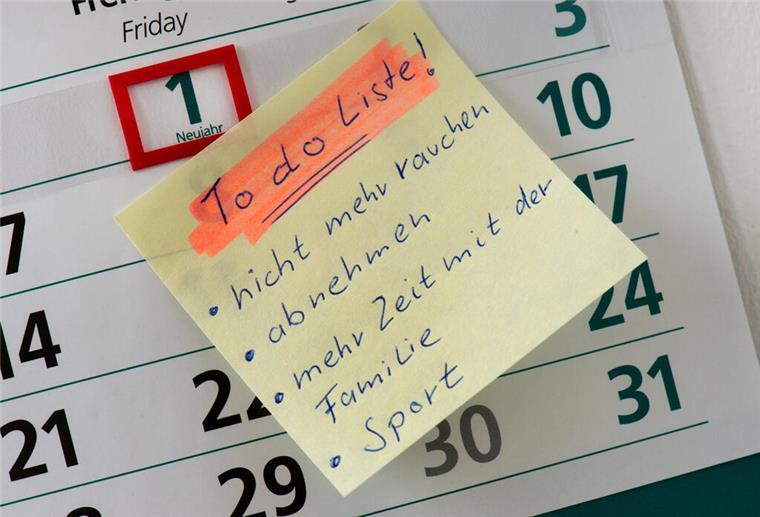 Friday
1
Neujahr
3
10
17
24
31
7
14
21
22
28
29
30
To do Liste!
• nicht mehr rauchen
• abnehmen
• mehr Zeit mit der
Familie
• Sport